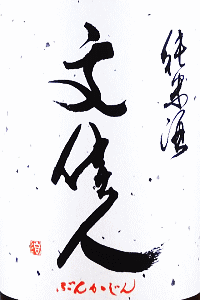 純米酒
文佳人
ぶんかじん